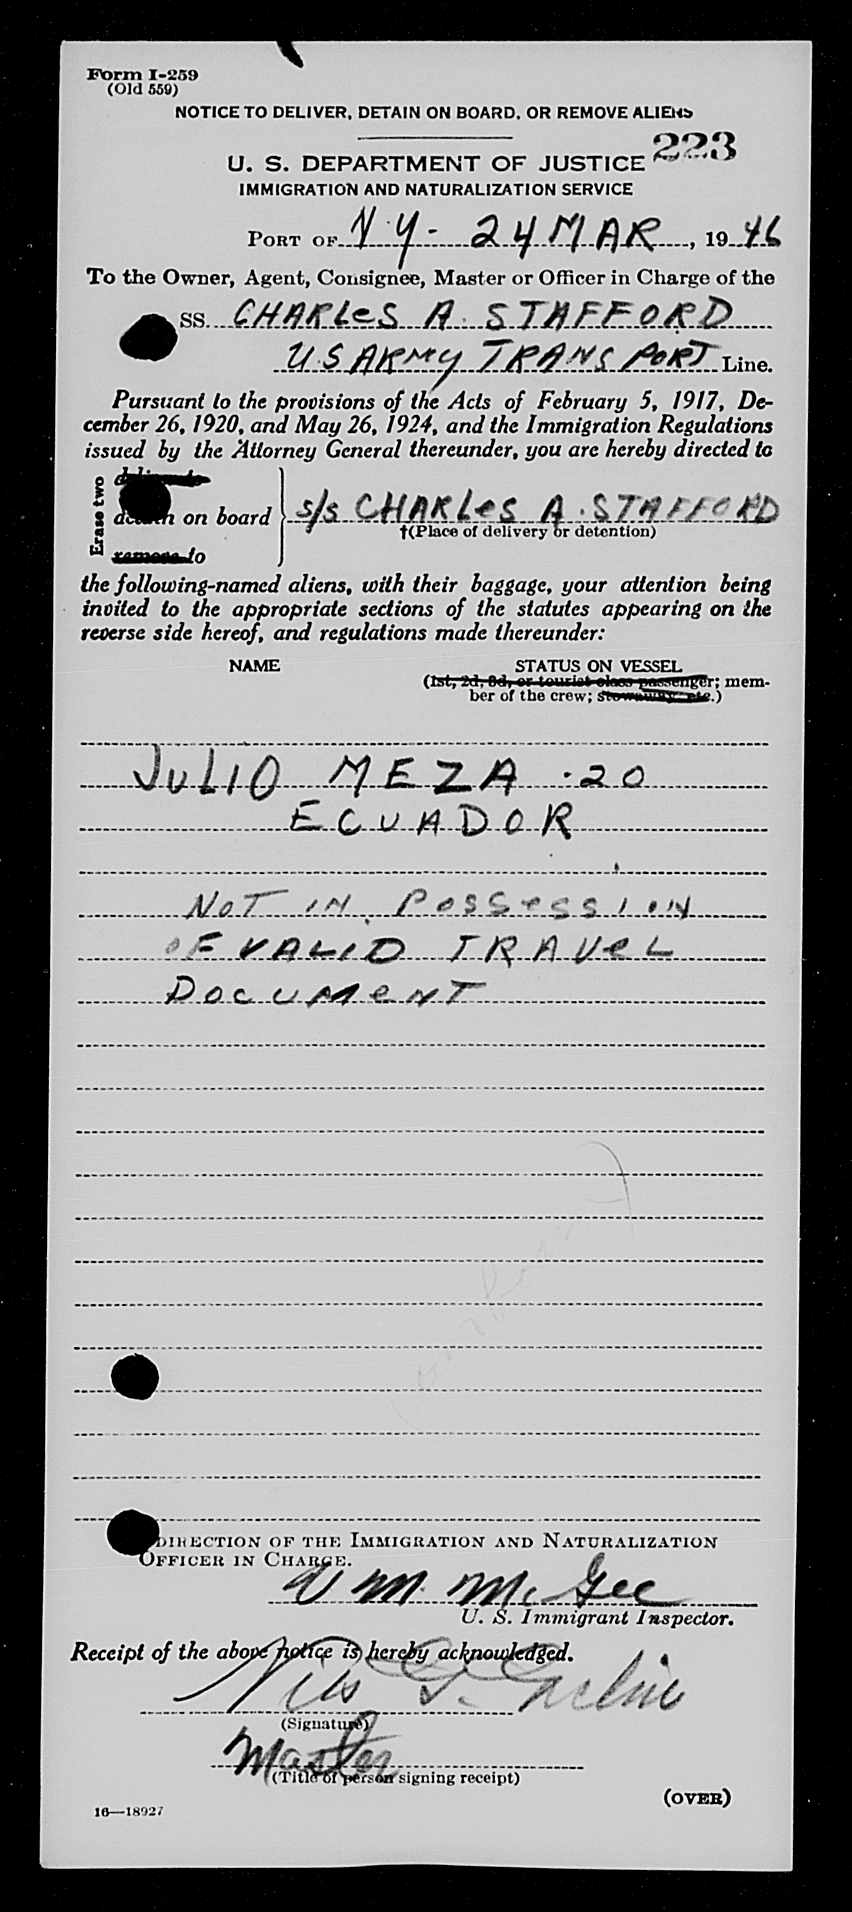 Form I-259
(Old 559)
NOTICE TO DELIVER, DETAIN ON BOARD, OR REMOVE ALIENS
223
U. S. DEPARTMENT OF JUSTICE
IMMIGRATION AND NATURALIZATION SERVICE
PORT OF N.Y- 24 MAR, 1946
To the Owner, Agent, Consignee, Master or Officer in Charge of the
SS. CHARLES A. STAFFORD
U.S ARMY TRANSPORT Line.
Pursuant to the provisions of the Acts of February 5, 1917, De-
cember 26, 1920, and May 26, 1924, and the Immigration Regulations
issued by the Attorney General thereunder, you are hereby directed to
Erase two
deliver to
detain on board s/s CHARLES A. STAFFORD
†(Place of delivery or detention)
remove to
the following-named aliens, with their baggage, your attention being
invited to the appropriate sections of the statutes appearing on the
reverse side hereof, and regulations made thereunder:
NAME STATUS ON VESSEL
(1st, 2d, 3d, or tourist class passenger; mem-
ber of the crew; stowaway, etc.)
JULIO MEZA .20
ECUADOR
NOT IN POSSESSION
OF VALID TRAVEL
DOCUMENT
DIRECTION OF THE IMMIGRATION AND NATURALIZATION
OFFICER IN CHARGE.
Wm. McGee
U. S. Immigrant Inspector.
Receipt of the above notice is hereby acknowledged.
Nils G.
(Signature)
Master
(Title of person signing receipt)
(OVER)
16—18927